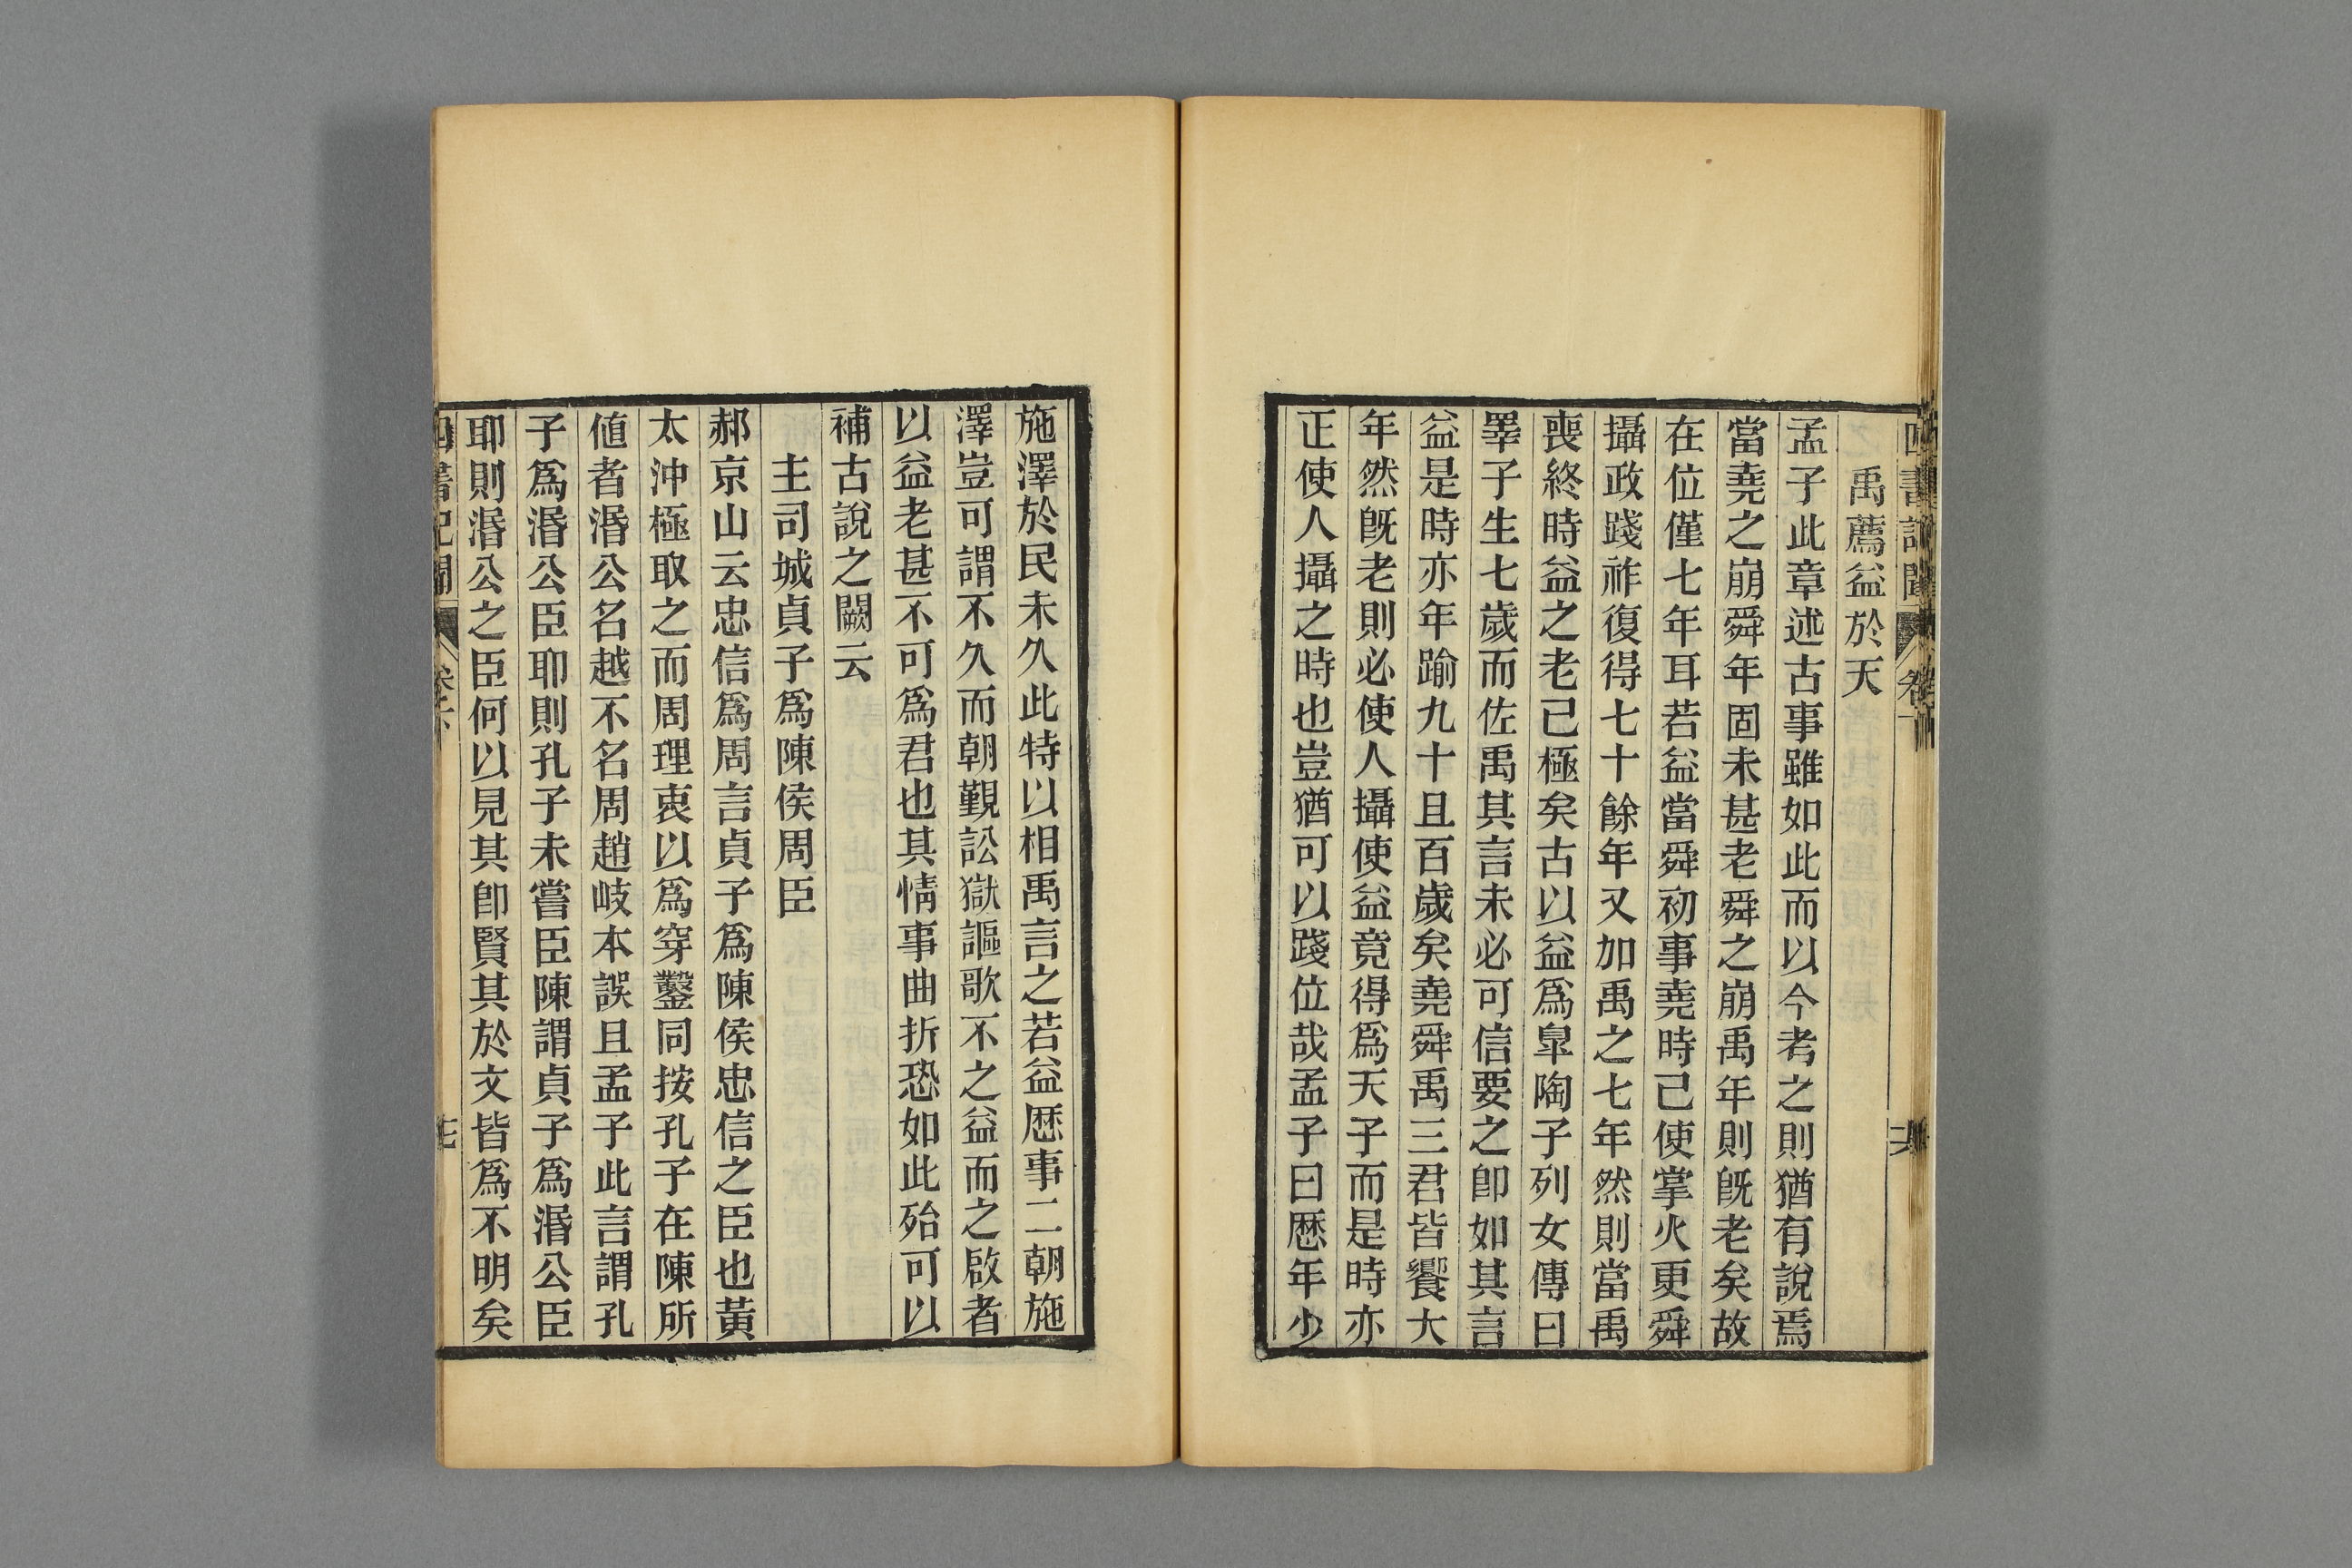 禹薦益於天
孟子此章述古事雖如此而以今考之則猶有說焉
當堯之崩舜年固未甚老舜之崩禹年則旣老矣故
在位僅七年耳若益當舜初事堯時已使掌火更舜
攝政踐祚復得七十餘年又加禹之七年然則當禹
喪終時益之老已極矣古以益爲臯陶子列女傳曰
睪子生七歲而佐禹其言未必可信要之卽如其言
益是時亦年踰九十且百歲矣堯舜禹三君皆饗大
年然旣老則必使人攝使益竟得爲天子而是時亦
正使人攝之時也豈猶可以踐位哉孟子曰歷年少
施澤於民未久此特以相禹言之若益歷事二朝施
澤豈可謂不久而朝覲訟獄謳歌不之益而之啟者
以益老甚不可爲君也其情事曲折恐如此殆可以
補古說之闕云
主司城貞子爲陳侯周臣
郝京山云忠信爲周言貞子爲陳侯忠信之臣也黃
太沖極取之而周理衷以爲穿鑿同按孔子在陳所
値者湣公名越不名周趙岐本誤且孟子此言謂孔
子爲湣公臣耶則孔子未嘗臣陳謂貞子爲湣公臣
耶則湣公之臣何以見其卽賢其於文皆爲不明矣